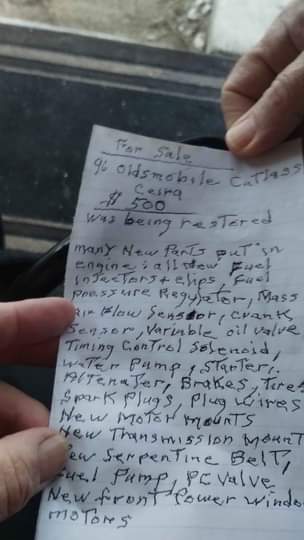 For Sale
96 Oldsmobile Cutlass
Ciera
$ 500
was being restored
many New Parts put in
engine: all New Fuel
injectors + clips, Fuel
pressure Reguater, Mass
air flow Sensor, Crank
Sensor, Varible oil valve
Timing Control Solenoid,
water Pump, Starter,
Altenater, Brakes, tires
Spark Plugs, Plug wires
New Motor mounts
New Transmission Mount
New Serpentine Belt,
Fuel Pump, PC Valve
New front Power Window
motors